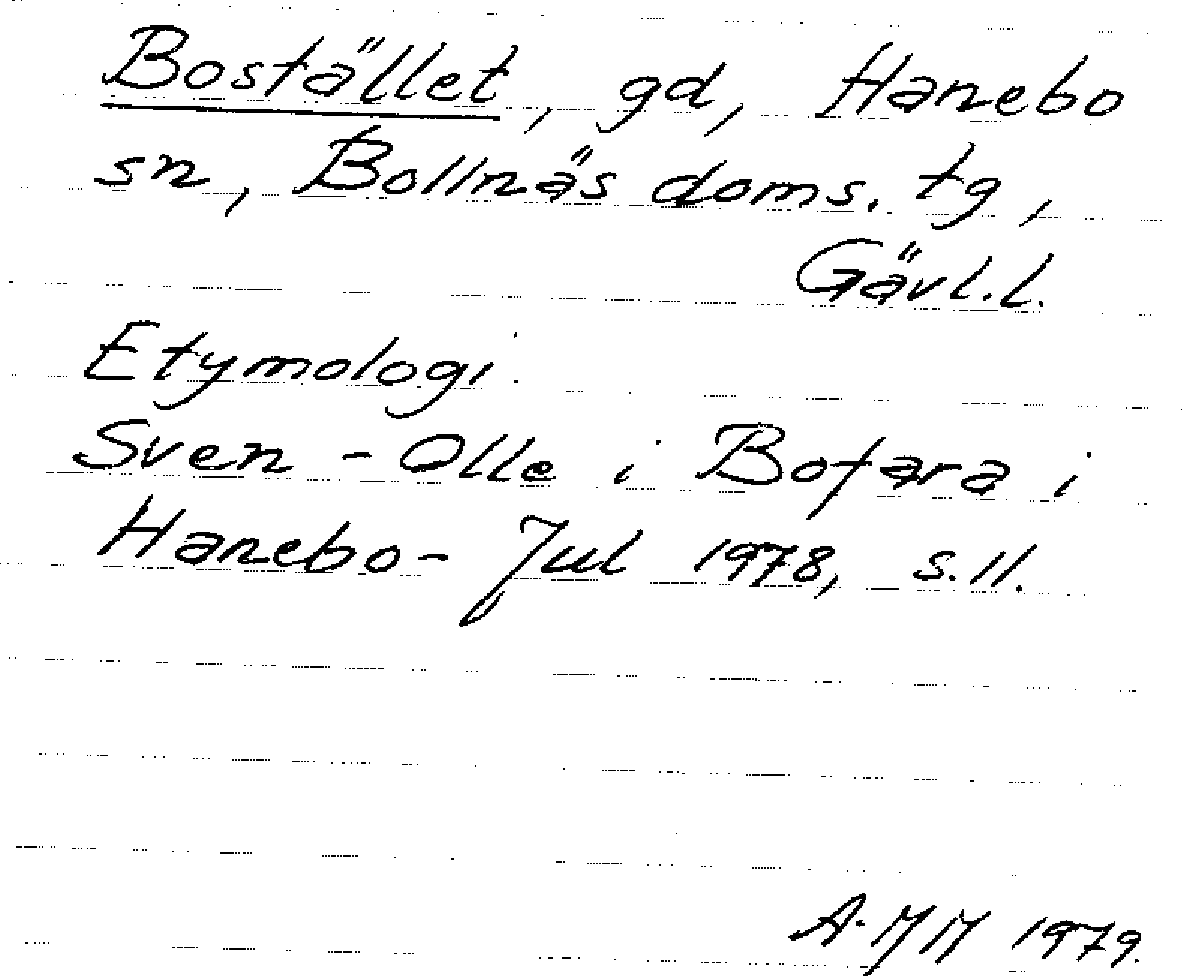 Bostället, gd, Hanebo
sn, Bollnäs doms. tg,
Gävl.l.
Etymologi.
Sven-Olle i Bofara i
Hanebo- Jul 1978, s.11.
A. MM 1979.